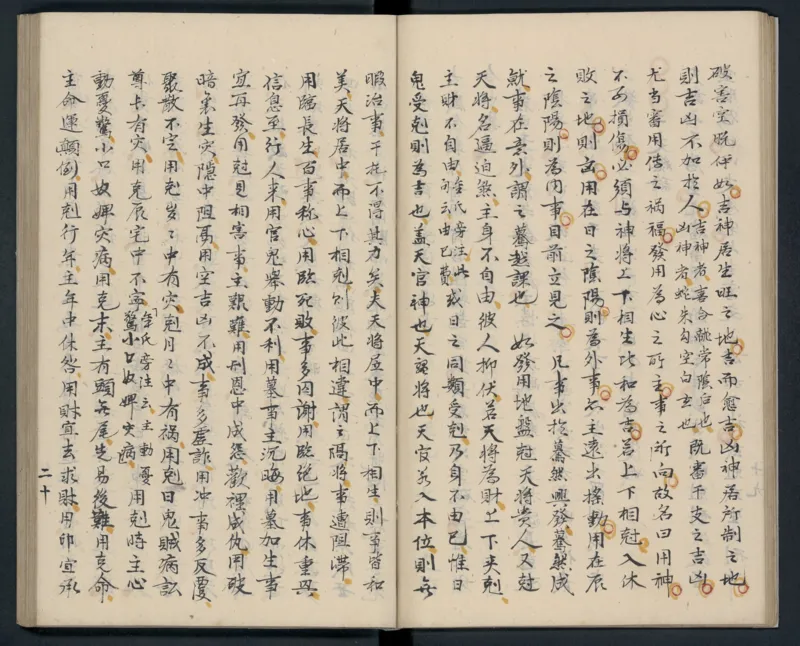 破害空既伊始吉神居生旺之地吉而愈吉凶神居所制之地
則吉凶不加於人吉神者喜合龍常陰后也
凶神者蛇朱勾空白玄也既審干支之吉凶
尤当審用傳之禍福發用為心之所主事之所向故名曰用神
不可損傷必須与神將上下相生比和為吉若上下相尅入休
敗之地則凶用在日之陰陽則為外事應主遠出搖動用在辰
之陰陽則為內事目前立見之 凡事出於驀然興發驀然成
就事在意外謂之驀越課也 如發用地盤尅天將貴人又尅
天將名逼迫煞主身不自由彼人抑伏若天將為財上下夹剋
主財不自由余氏旁注此
句云由已費或日之同類受剋乃身不由已惟日
鬼受剋則為吉也盖天官神也天罡將也天官若入本位則無
暇治事干托不得其力矣夫天將居中而上下相生則事皆和
美天將居中而上下相剋則彼此相違謂之隔將事遭阻滯
用臨長生百事称心用臨死敗事多凶謝用臨絕地事休重興
信息至行人来用官鬼舉動不利用墓事主沉晦用墓加生事
宜再發用尅見相害事主艱難用刑恩中成怨歡裡成仇用破
暗裏生灾隱中阻鬲用空吉凶不成事多虛詐用冲事多反覆
聚散不定用剋岁岁中有灾剋月月中有禍用剋日鬼賊病訟
尊卡有灾用克辰宅中不寧余氏旁注云主動憂
驚小口奴婢灾病用剋時主心
動憂驚小口奴婢灾病用克末主有頭無尾先易後難用克命
主命運顛倒用剋行年主年中休咎用財宜去求財用印宜承
二十